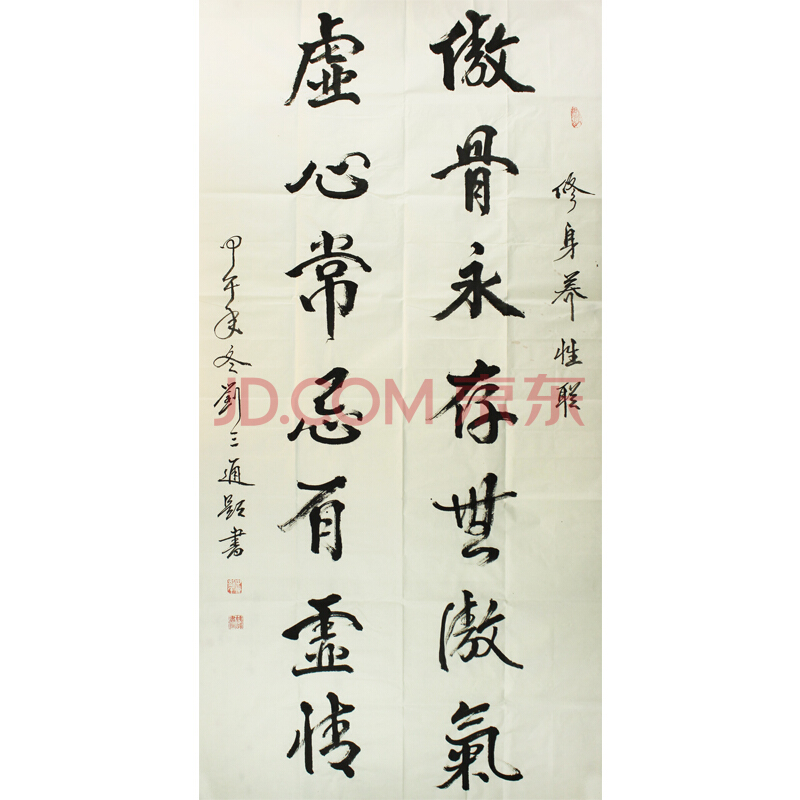 修身养性联
傲骨永存無傲氣
虚心常忌有虚情
甲午年冬劉三通題書
JD.COM 京东